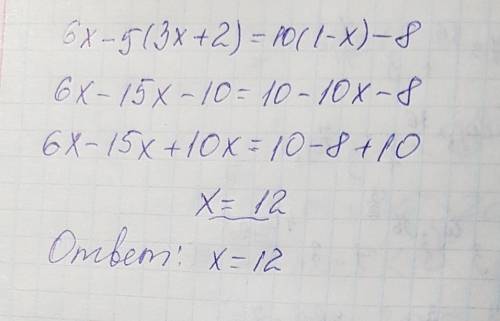 6x-5(3x+2)=10(1-x)-8
6x-15x-10=10-10x-8
6x-15x+10x=10-8+10
x=12
Ответ: x=12